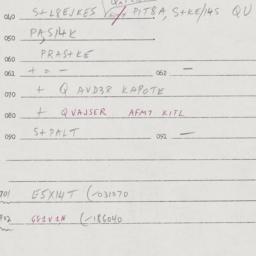 040 S+L8EJKES PIT8A, S+KE/H5 QU
050 PA,SI4K
060 PRAS+KE
061 + = - 062 -
070 + Q AVD3R KAPOTK
080 + QVAJSER AFM7 KITL
090 S+PALT 092 -
701 E5XI4T (-031070
702 GE1V1N (-186040